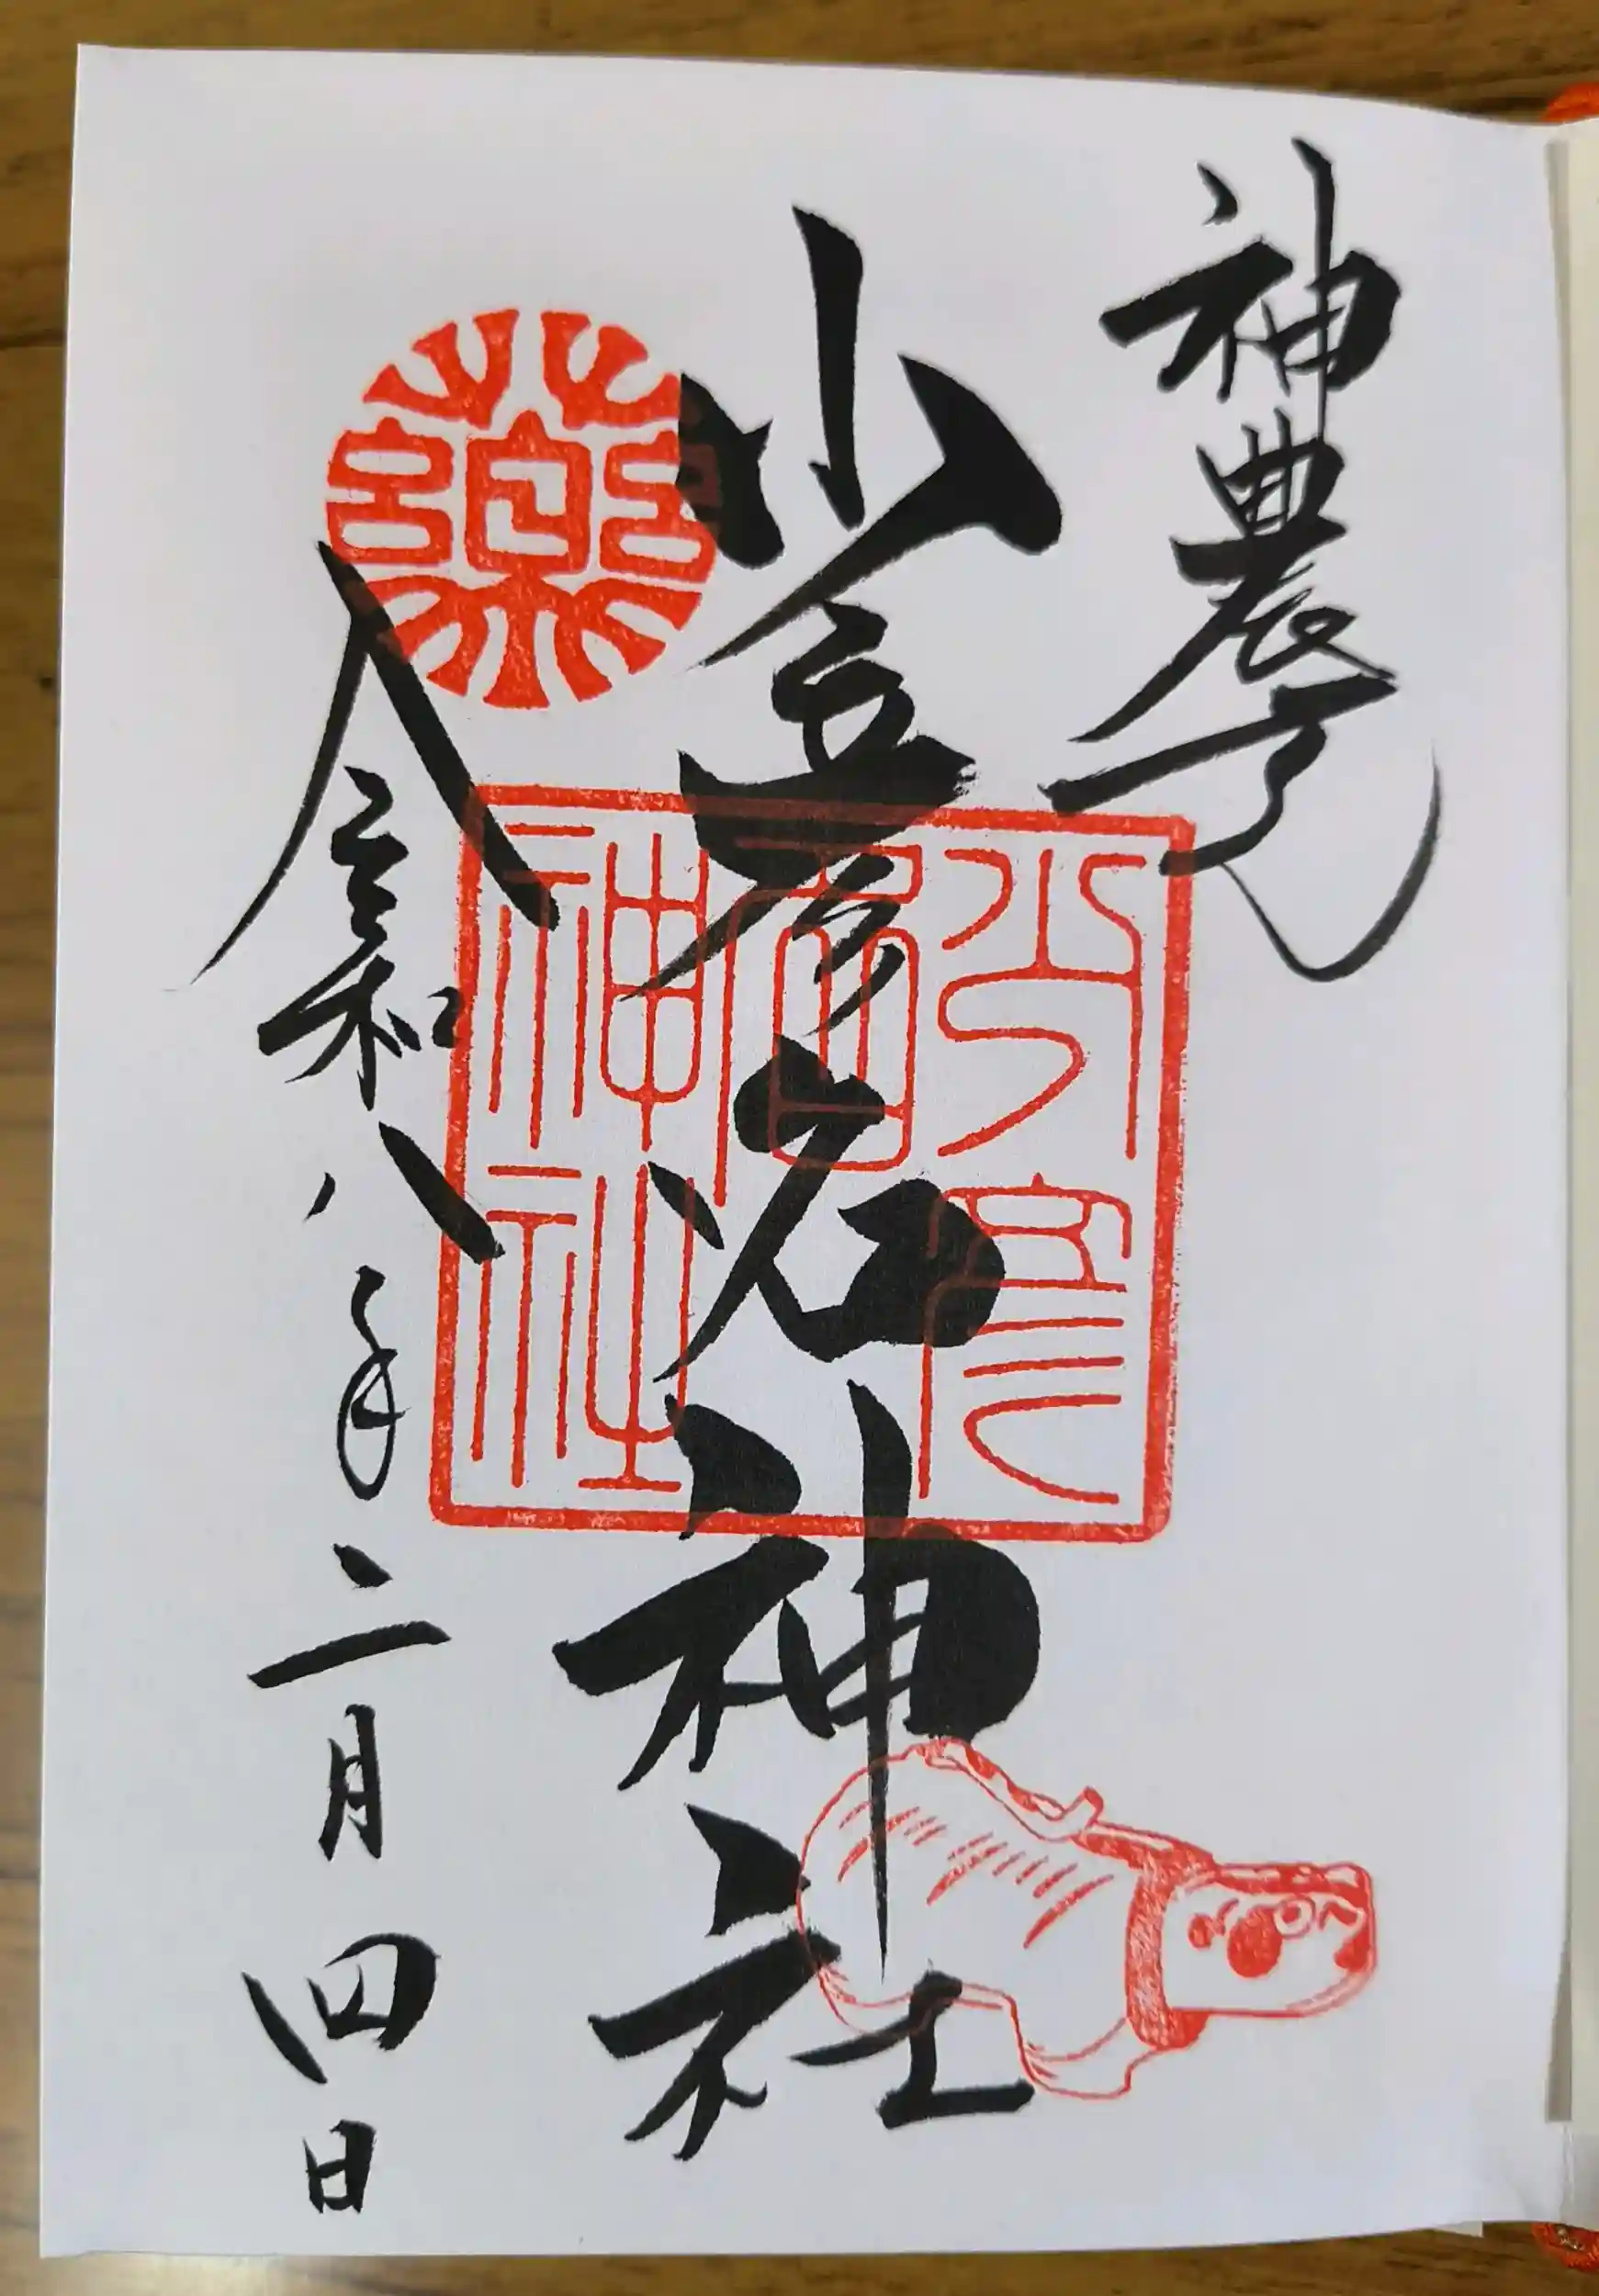 神農
少彦名神社
令和八年二月四日
藥
少彦名神社